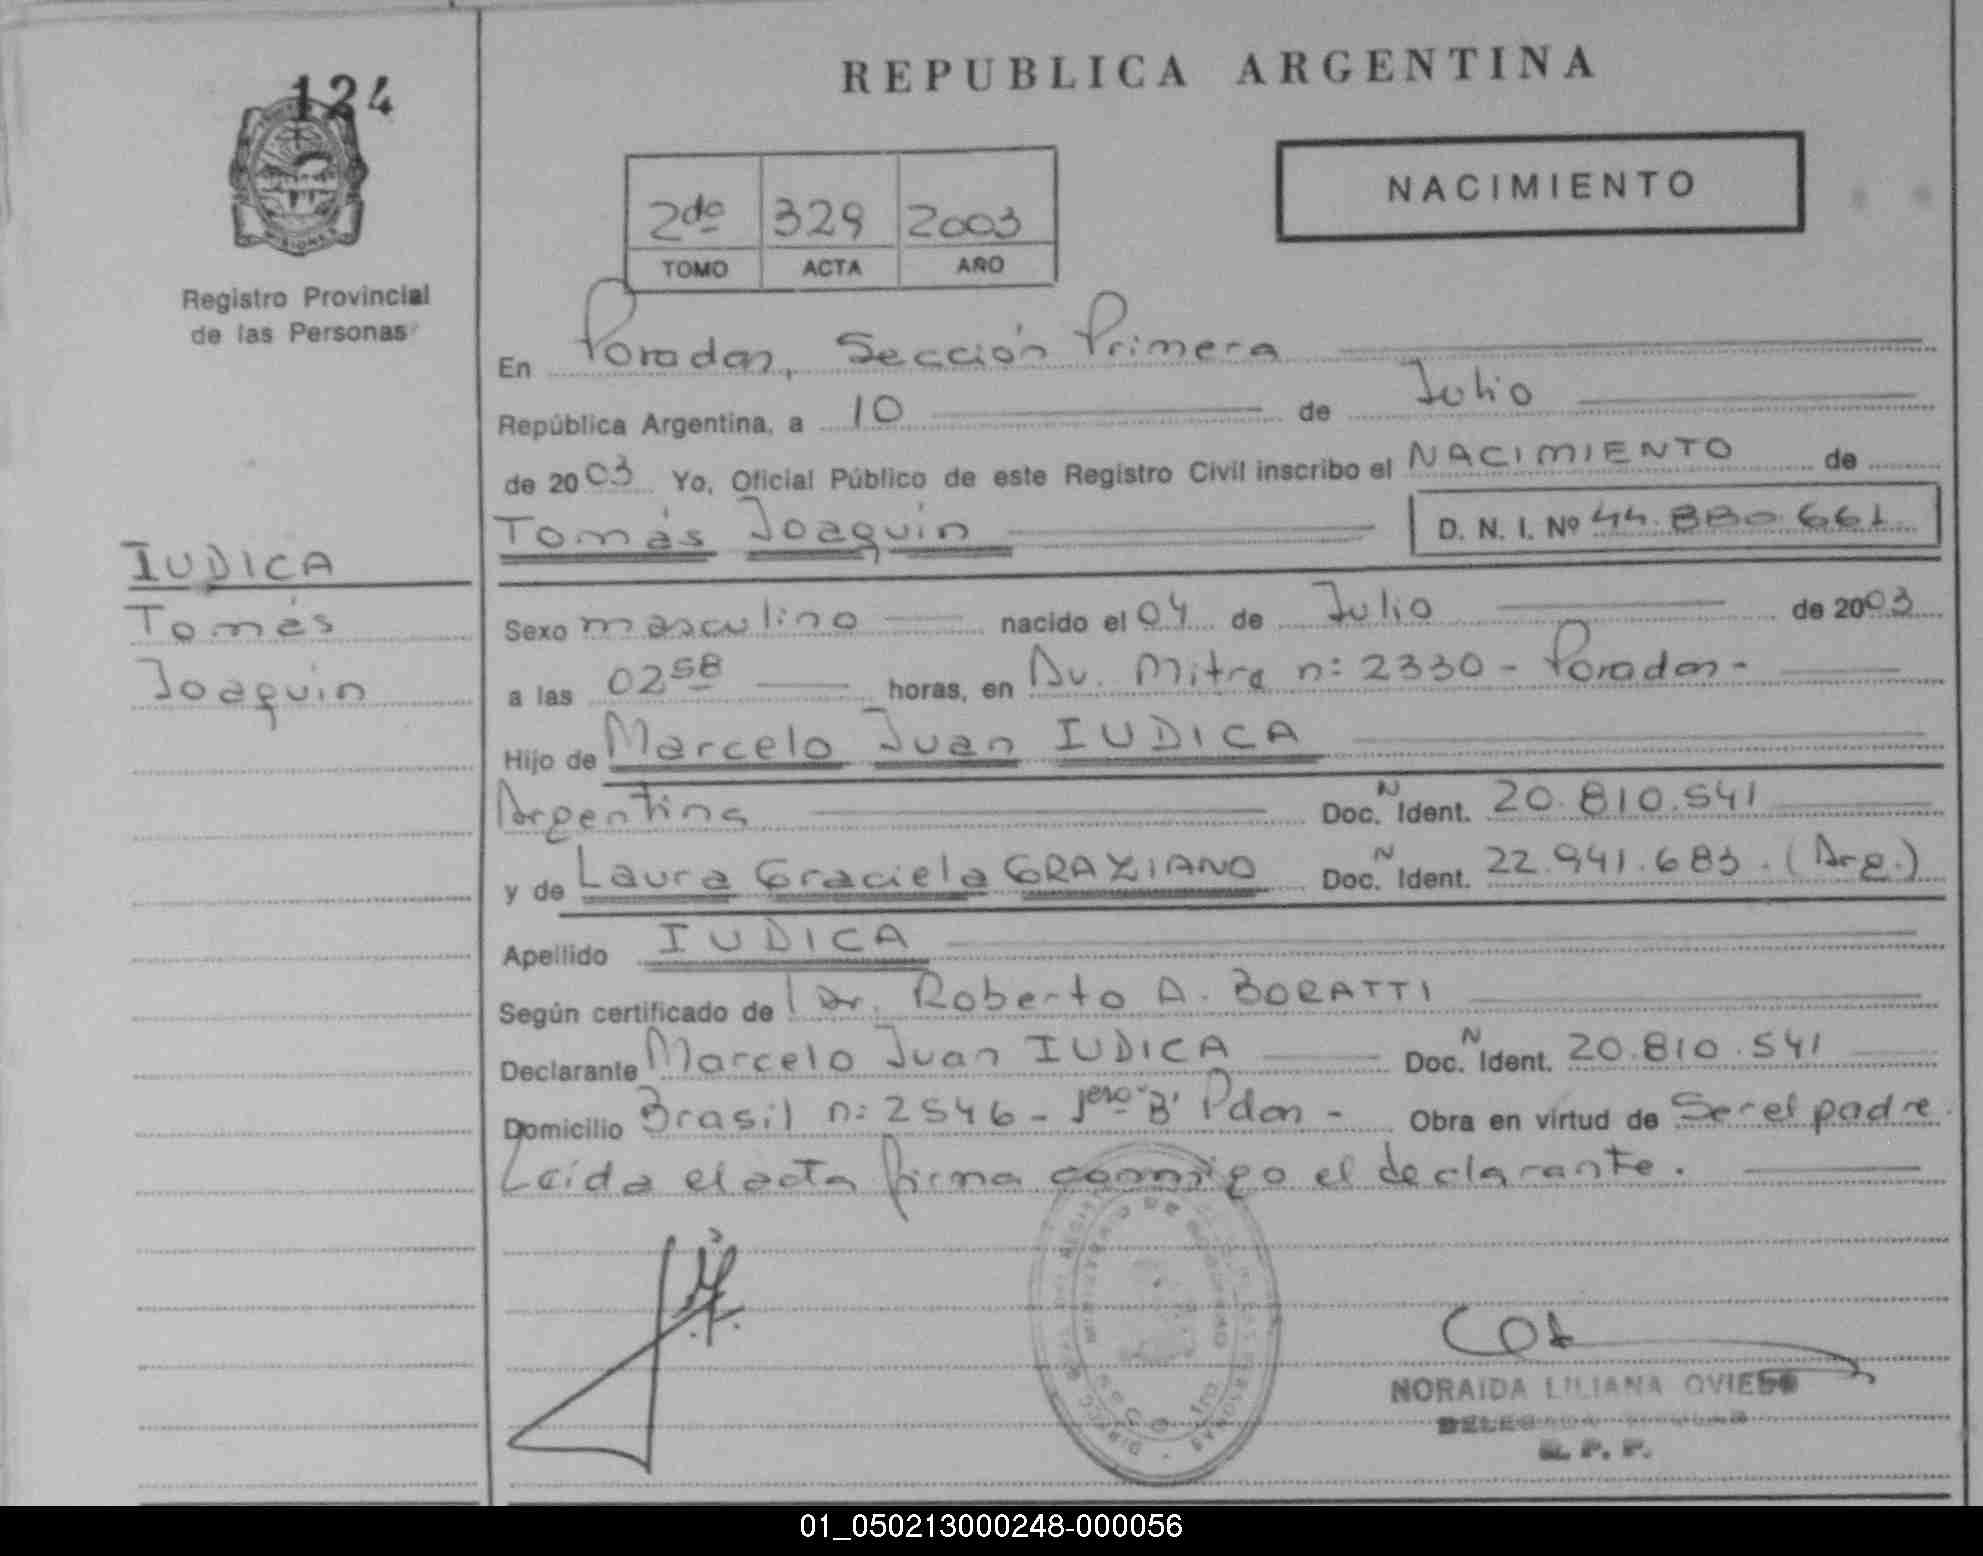 124
MISIONES
Registro Provincial
de las Personas
IUDICA
Tomás
Joaquín
REPUBLICA ARGENTINA
NACIMIENTO
2do 329 2003
TOMO ACTA AÑO
En Posadas, Sección Primera
República Argentina, a 10 de Julio
de 2003 Yo, Oficial Público de este Registro Civil inscribo el NACIMIENTO de
Tomás Joaquín D. N. I. Nº 44.880.661
Sexo masculino nacido el 04 de Julio de 2003
a las 02 58 horas, en Av. Mitre n: 2330 - Posadas -
Hijo de Marcelo Juan IUDICA
Argentina Doc. N Ident. 20.810.541
y de Laura Graciela GRAZIANO Doc. N Ident. 22.941.683. (Arg.)
Apellido IUDICA
Según certificado de l Dr. Roberto A. BORATTI
Declarante Marcelo Juan IUDICA Doc. N Ident. 20.810.541
Domicilio Brasil n: 2546 - 1ero "B" Pdas - Obra en virtud de Ser el padre.
Leída el acta firma conmigo el declarante.
NORAIDA LILIANA OVIEDO
R. P. P.
01_050213000248-000056